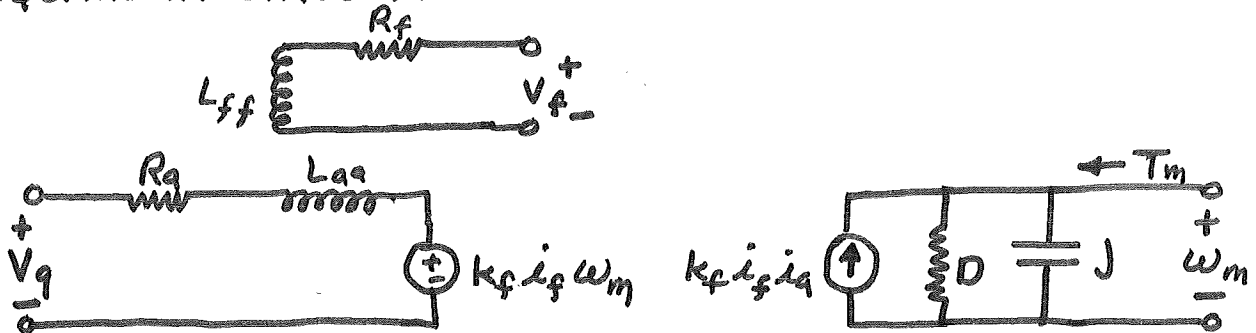 R_f
L_ff
+
V_f
-
R_a
L_aa
← T_m
+
V_a
-
+
-
k_f i_f ω_m
k_f i_f i_a
D
J
+
ω_m
-